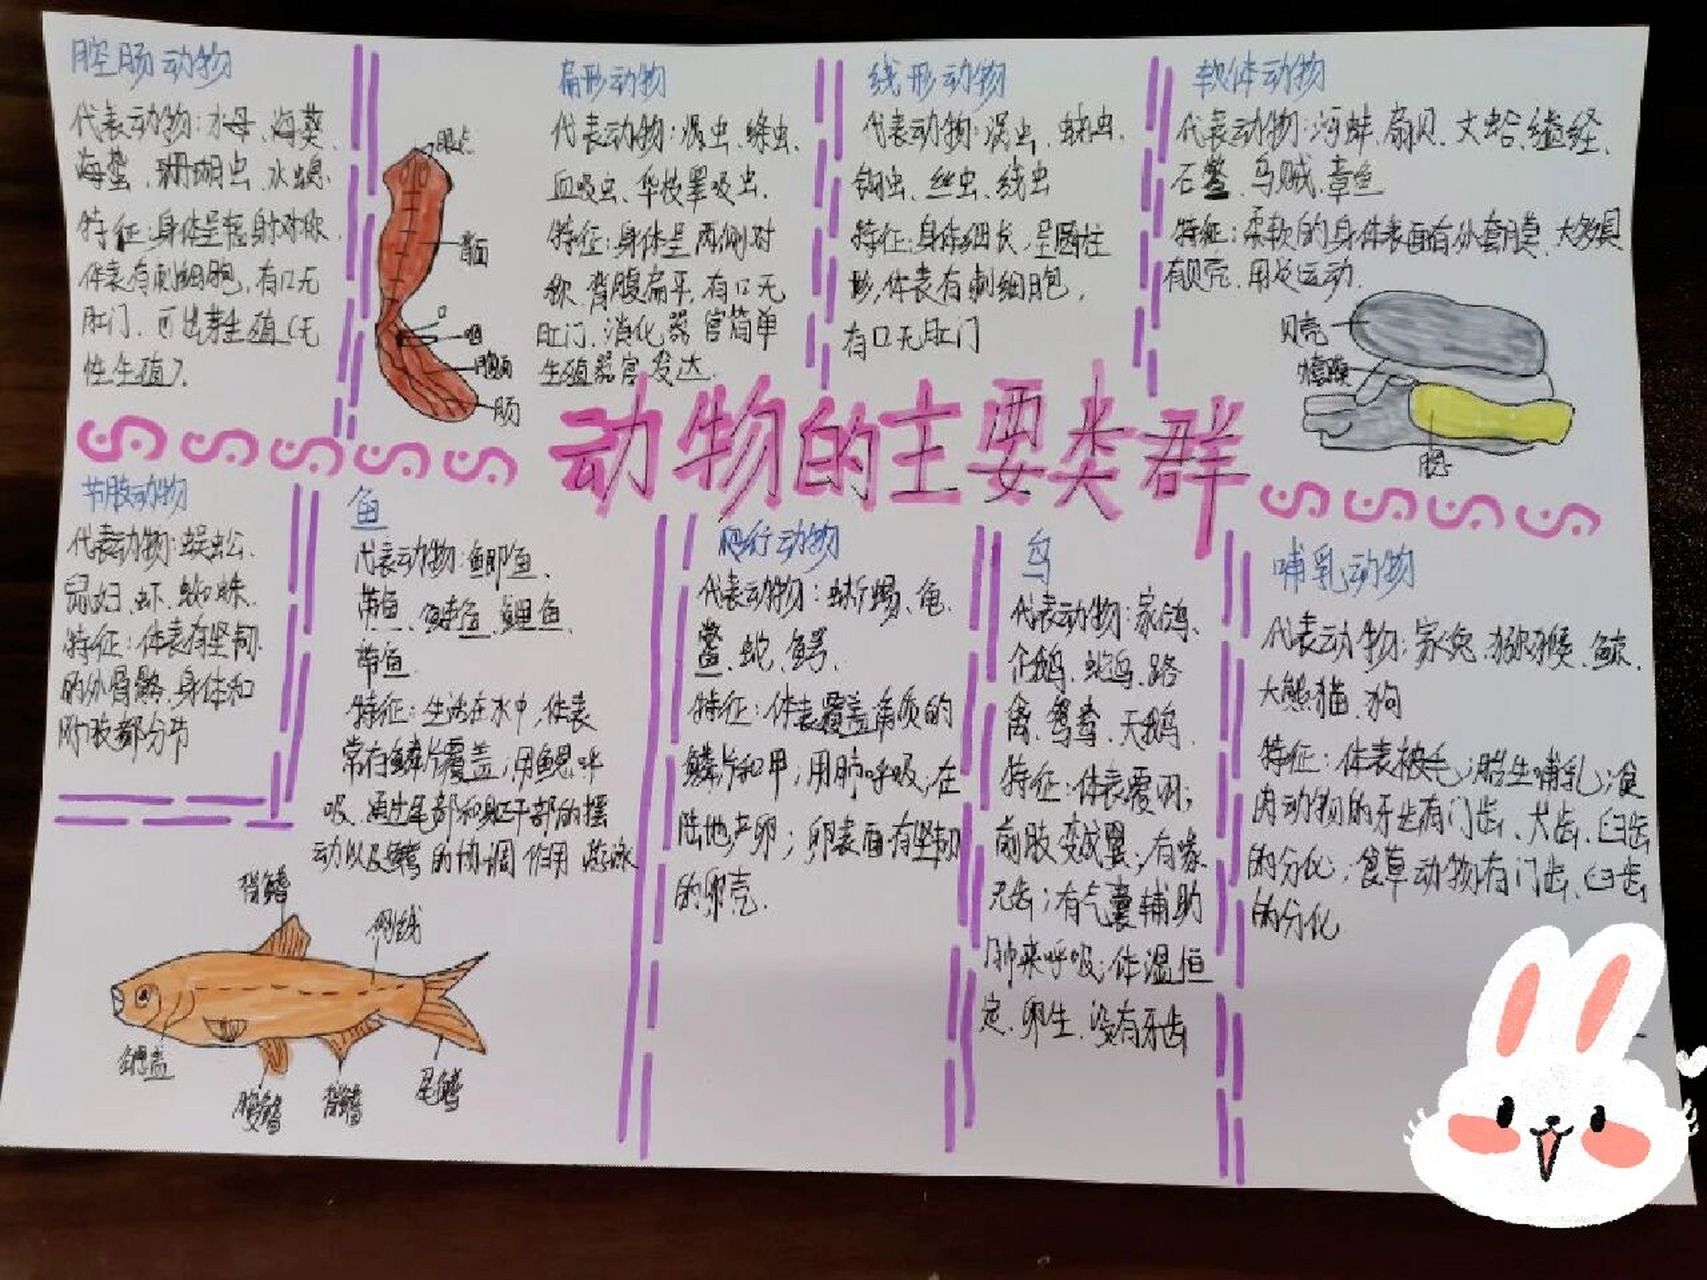 腔肠动物
代表动物:水母、海葵、
海蜇、珊瑚虫、水螅.
特征:身体呈辐射对称
体表有刺细胞,有口无
肛门.可出芽生殖(无
性生殖).
眼点
背面
口
咽
腹面
肠
扁形动物
代表动物:涡虫、绦虫、
血吸虫、华枝睾吸虫.
特征:身体呈两侧对
称、背腹扁平,有口无
肛门、消化器官简单
生殖器官发达.
线形动物
代表动物:涡虫、蛲虫、
钩虫、丝虫、线虫
特征:身体细长,呈圆柱
形,体表有刺细胞,
有口无肛门
软体动物
代表动物:河蚌、扇贝、文蛤、缢蛏、
石鳖、乌贼、章鱼
特征:柔软的身体表面有外套膜、大多具
有贝壳.用足运动.
贝壳
动物的主要类群
节肢动物
代表动物:蜈蚣、
鼠妇、虾、蜘蛛.
特征:体表有坚韧
的外骨骼,身体和
附肢都分节
鱼
代表动物:鲫鱼、
带鱼、鲤鱼、
带鱼.
特征:生活在水中,体表
常有鳞片覆盖;用鳃呼
吸,通过尾部和躯干部的摆
动以及鳍的协调作用游泳
背鳍
侧线
鳃盖
腹鳍
背鳍
尾鳍
爬行动物
代表动物:蜥蜴、龟、
鳖、蛇、鳄.
特征:体表覆盖角质的
鳞片和甲;用肺呼吸;在
陆地产卵;卵表面有坚韧
的卵壳.
鸟
代表动物:家鸽、
企鹅、鸵鸟、
禽、鸳鸯、天鹅.
特征:体表覆羽;
前肢变成翼;有喙
无齿;有气囊辅助
肺来呼吸;体温恒
定.卵生.没有牙齿
哺乳动物
代表动物:家兔、猕猴、鲸、
大熊猫、狗
特征:体表被毛;胎生哺乳;食
肉动物的牙齿有门齿、犬齿、臼齿
的分化;食草动物有门齿、臼齿
的分化